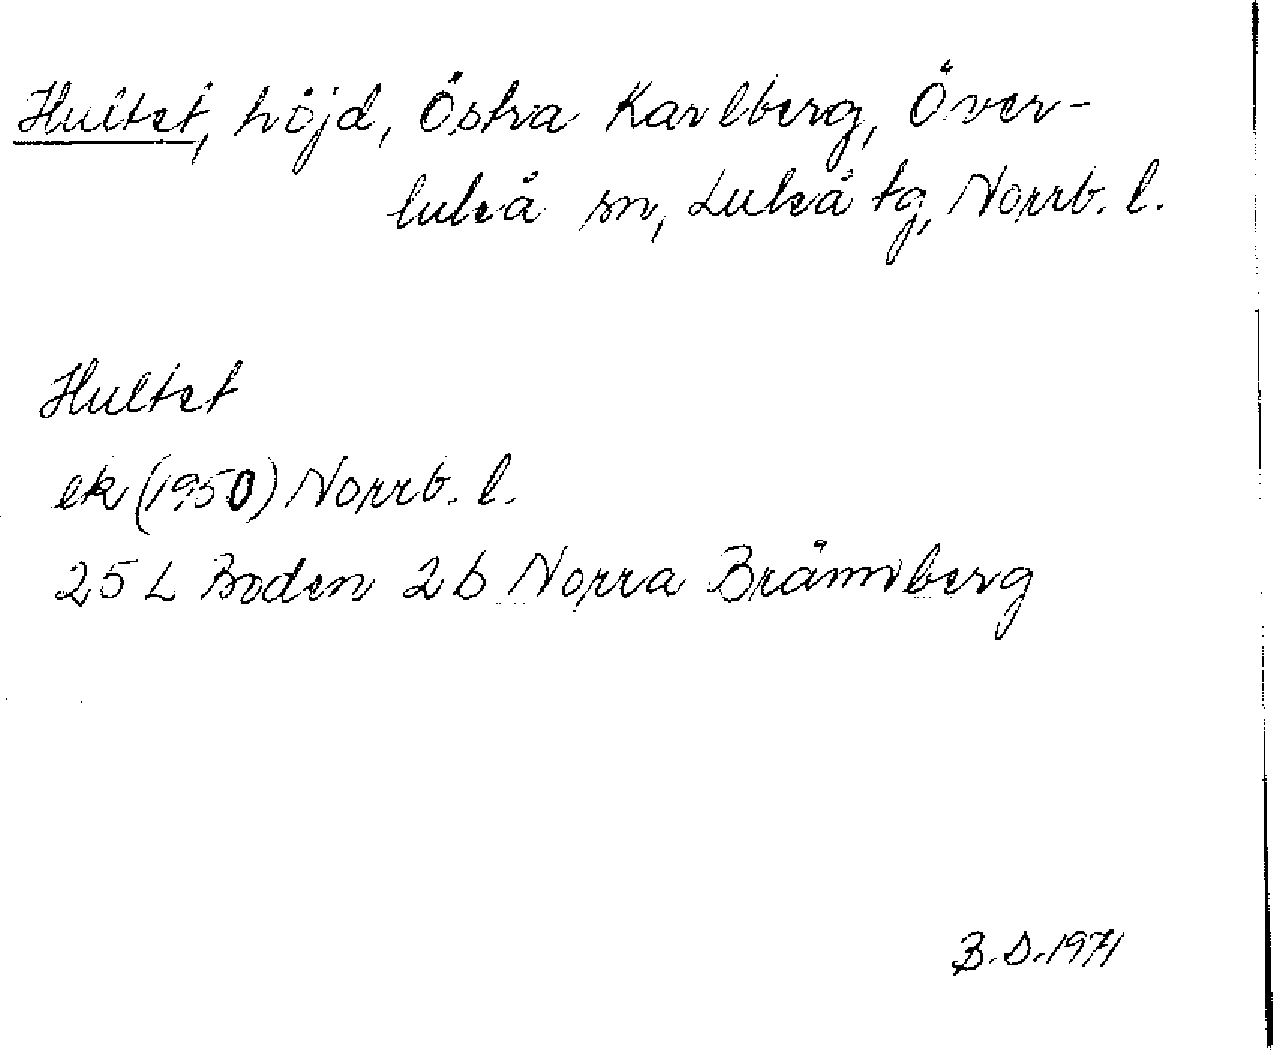 Hultet, höjd, Östra Karlberg, Över-
luleå sn, Luleå tg, Norrb. l.
Hultet
ek (1950) Norrb. l.
25 L Boden 2b Norra Brännberg
B.D. 1971